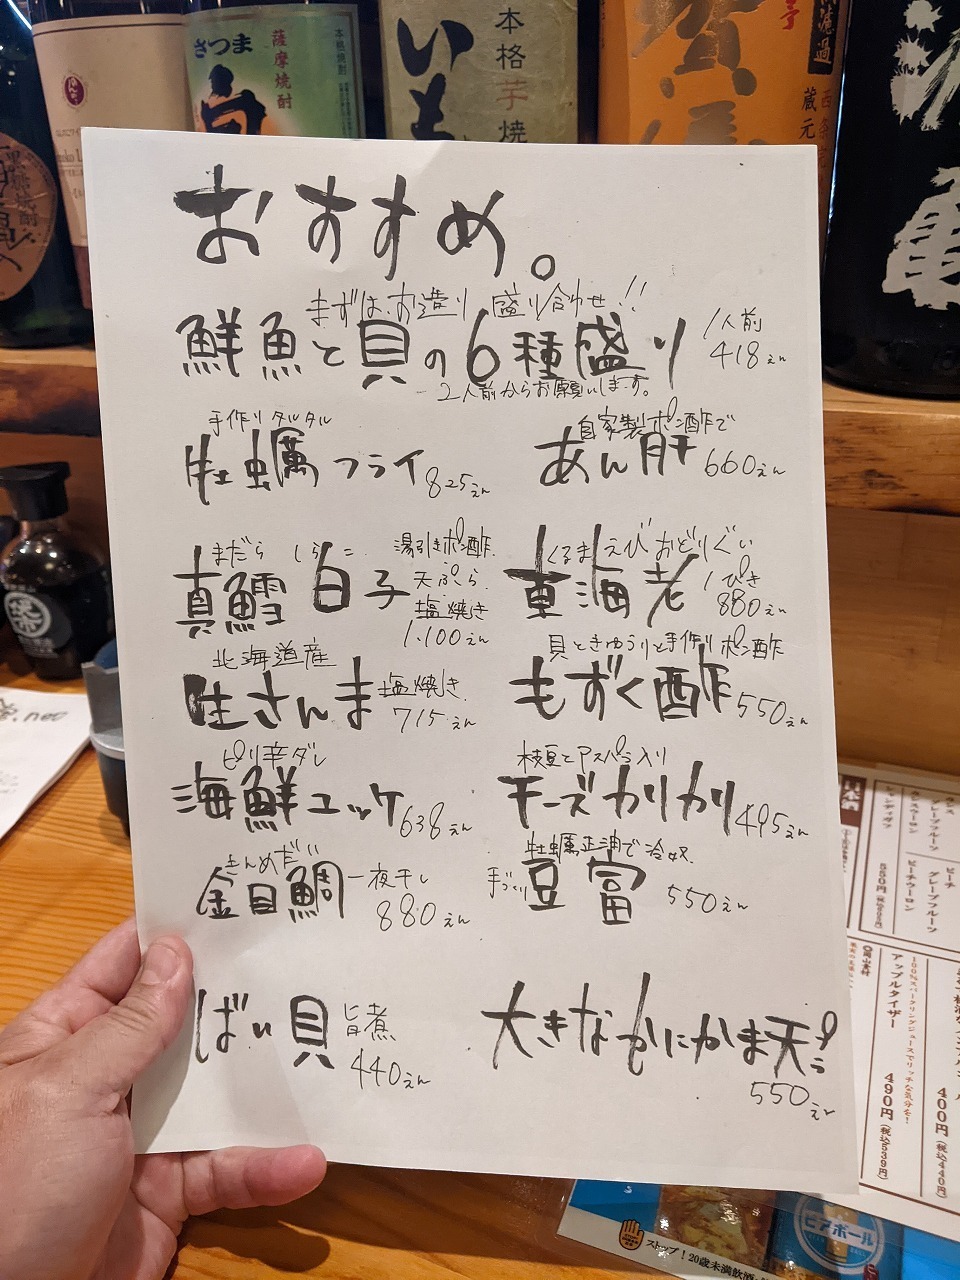 さつま
薩摩焼酎
本格焼酎
いも
本格芋焼
濾過
蔵元
黒糖焼酎
おすすめ。
まずは、お造り盛り合わせ!!
鮮魚と貝の6種盛り
1人前
418えん
2人前からお願いします。
手作りタルタル
牡蠣フライ 825えん
自家製ポン酢で
あん肝 660えん
まだら しらこ
真鱈 白子
湯引きポン酢
天ぷら
塩焼き
1.100えん
くるまえび おどりぐい
車海老
1ぴき
880えん
北海道産
生さんま
塩焼き
715えん
貝ときゅうりと手作りポン酢
もずく酢 550えん
ピリ辛ダレ
海鮮ユッケ 638えん
枝豆とアスパラ入り
チーズカリカリ 495えん
きんめだい
金目鯛 一夜干し
880えん
牡蠣正油で冷奴
手づくり 豆富 550えん
ばい貝 旨煮
440えん
大きなかにかま天ぷら
550えん
日本酒
グレープフルーツ
ピーチウーロン
550円(税込605円)
ピーチ
グレープフルーツ
100%スパークリングジュースでリッチな気分を!
アップルタイザー
490円(税込539円)
400円(税込440円)
ビアボール
ストップ!20歳未満飲酒